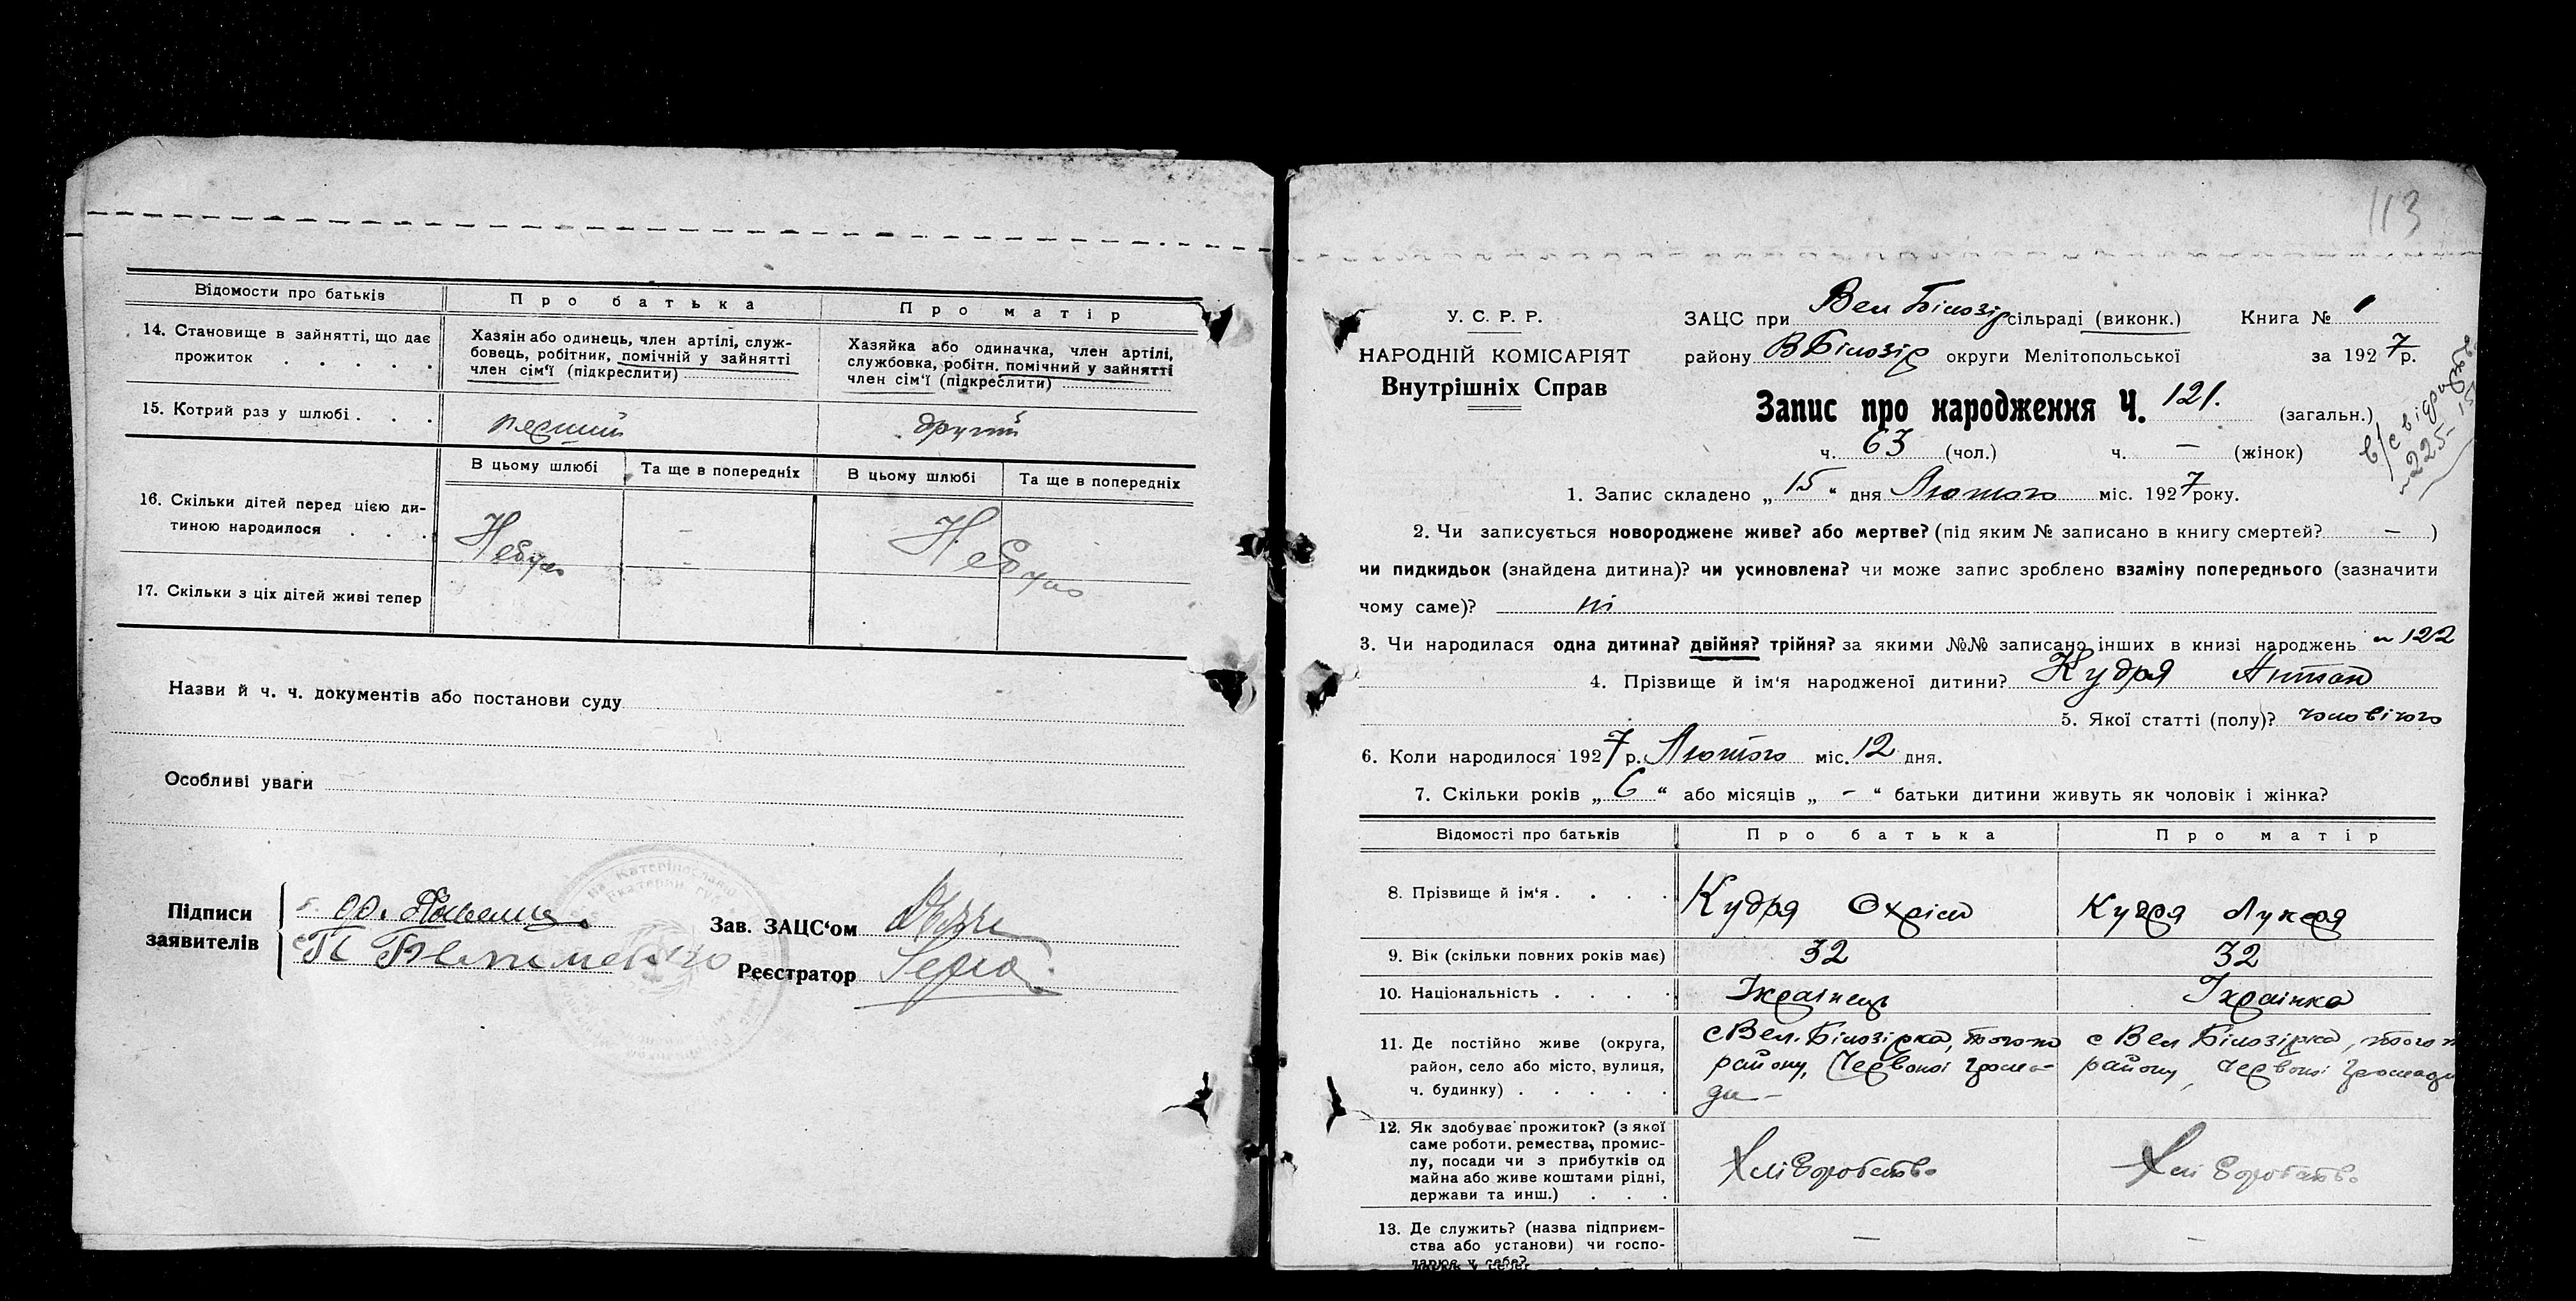 Відомости про батьків
Про батька
Про матір
14. Становище в зайнятті, що дає
прожиток . . . . .
Хазяін або одинець, член артілі, служ-
бовець, робітник, помічній у зайнятті
член сім'ї (підкреслити)
Хазяйка або одиначка, член артілі,
службовка, робітн. помічний у зайнятті
член сім'ї (підкреслити)
15. Котрий раз у шлюбі . . .
другий
В цьому шлюбі
Та ще в попередніх
В цьому шлюбі
Та ще в попередніх
16. Скільки дітей перед цією ди-
тиною народилося . . .
Небуло
-
Небуло
17. Скільки з ціх дітей живі тепер
-
Назви й ч. ч. документів або постанови суду
Особливі уваги
Підписи
заявителів
Зав. ЗАЦС'ом
Реєстратор
113
У. С. Р. Р.
НАРОДНІЙ КОМІСАРІЯТ
Внутрішніх Справ
ЗАЦС при Вел Білозір сільраді (виконк.)
Книга № 1
району ВБілозір округи Мелітопольської
за 1927 р.
Запис про народження Ч. 121. (загальн.)
ч. 63 (чол.) ч. — (жінок)
225
1. Запис складено „15“ дня Лютого міс. 1927 року.
2. Чи записується новороджене живе? або мертве? (під яким № записано в книгу смертей? — )
чи пидкидьок (знайдена дитина)? чи усиновлена? чи може запис зроблено взаміну попереднього (зазначити
чому саме)? ні
3. Чи народилася одна дитина? двійня? трійня? за якими №№ записано інших в книзі народжень 122
4. Прізвище й ім'я народженої дитини? Кудря Антон
5. Якої статті (полу)? чоловічого
6. Коли народилося 1927 р. Лютого міс. 12 дня.
7. Скільки років „6“ або місяців „-“ батьки дитини живуть як чоловік і жінка?
Відомості про батьків
Про батька
Про матір
8. Прізвище й ім'я . . . .
Кудря Охрім
Кудря Лукеря
9. Вік (скільки повних років має)
32
32
10. Національність . . . .
Українець
Українка
11. Де постійно живе (округа,
район, село або місто, вулиця,
ч. будинку) . . . . .
с Вел. Білозірка, того ж
району, Червоної грома-
ди -
с Вел Білозірка, того ж
району, Червоної громади
12. Як здобуває прожиток? (з якої
саме роботи, ремества, промис-
лу, посади чи з прибутків од
майна або живе коштами рідні,
держави та инш.) . . .
Хліборобство
Хліборобство
13. Де служить? (назва підприєм-
ства або установи) чи госпо-
дарює у себе?
—
-